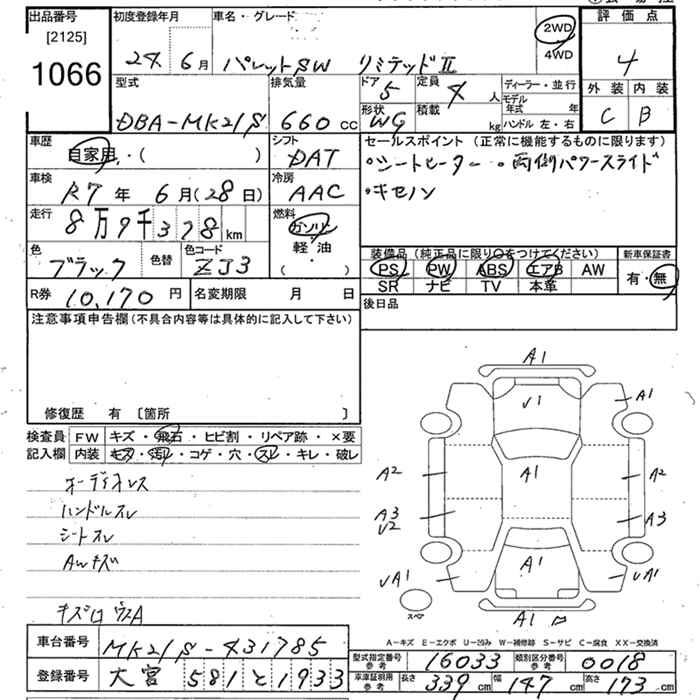 出品番号 初度登録年月 車名・グレード 評価点
[2125] 1066
24年 6月 パレットSW リミテッドⅡ 2WD 4WD 4
外装 内装 C B
型式 排気量 ドア 定員 ディーラー・並行
DBA-MK21S 660cc 5 4人 モデル年式 年
形状 WG 積載 kg ハンドル 左・右
車歴 自家用・( ) シフト DAT
セールスポイント(正常に機能するものに限ります)
・シートヒーター ・両側パワースライド
・キセノン
車検 R7年 6月(28日) 冷房 AAC
走行 8万9千378km 燃料 ガソリン 軽油 ( ・ )
色 ブラック 色替 色コード ZJ3
装備品(純正品に限り○をつけてください) 新車保証書
PS PW ABS エアB AW 有・無
SR ナビ TV 本革
R券 10,170円 名変期限 月 日
後日品
注意事項申告欄(不具合内容等は具体的に記入して下さい)
修復歴 有 [箇所 ]
検査員 FW キズ・飛石・ヒビ割・リペア跡・×要
記入欄 内装 キズ・汚れ・コゲ・穴・スレ・キレ・破レ
オーディオレス
ハンドルスレ
シートスレ
AWキズ
A1
√1 A1
A1
A2 A2
A3 √2 A3
√A1 A1 √A1
スペア
A1
A-キズ E-エクボ U-凹み W-補修跡 S-サビ C-腐食 XX-交換済
車台番号 MK21S-431785
型式指定番号 参考 16033 類別区分番号 参考 0018
登録番号 大宮 581 と 1933
車庫証明用 参考 長さ 339cm 幅 147cm 高さ 173cm